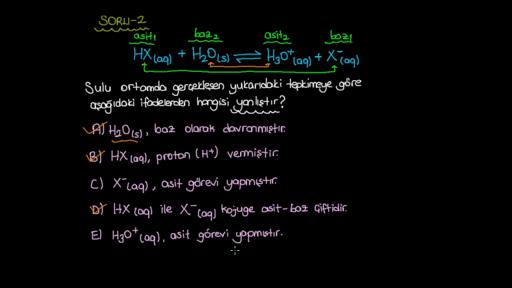 SORU-2
asit₁ baz₂ asit₂ baz₁
HX(aq) + H₂O(s) ⇌ H₃O⁺(aq) + X⁻(aq)
Sulu ortamda gerçekleşen yukarıdaki tepkimeye göre
aşağıdaki ifadelerden hangisi yanlıştır?
A) H₂O(s), baz olarak davranmıştır.
B) HX(aq), proton (H⁺) vermiştir.
C) X⁻(aq), asit görevi yapmıştır.
D) HX(aq) ile X⁻(aq) kojuge asit-baz çiftidir.
E) H₃O⁺(aq), asit görevi yapmıştır.